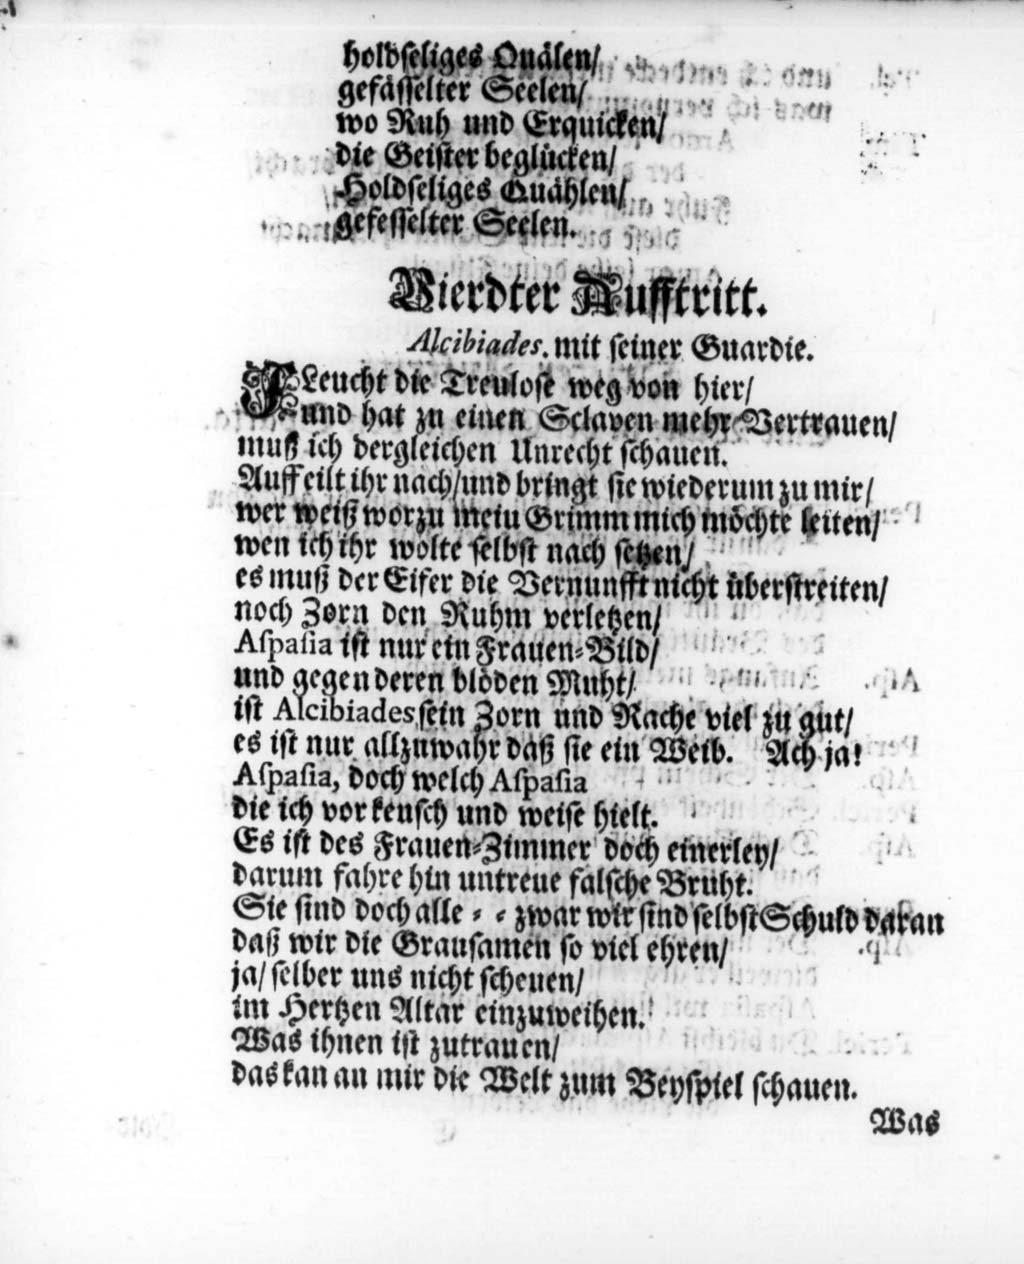 holdseliges Quälen/
gefässelter Seelen/
wo Ruh und Erquicken/
die Geister beglücken/
Holdseliges Quählen/
gefesselter Seelen.
Vierdter Aufftritt.
Alcibiades. mit seiner Guardie.
FLeucht die Treulose weg von hier/
und hat zu einen Sclaven mehr Vertrauen/
muß ich dergleichen Unrecht schauen.
Auff eilt ihr nach/und bringt sie wiederum zu mir/
wer weiß worzu meiu Grimm mich möchte leiten/
wen ich ihr wolte selbst nach setzen/
es muß der Eifer die Vernunfft nicht überstreiten/
noch Zorn den Ruhm verletzen/
Aspasia ist nur ein Frauen-Bild/
und gegen deren blöden Muht/
ist Alcibiades sein Zorn und Rache viel zu gut/
es ist nur allzuwahr daß sie ein Weib. Ach ja!
Aspasia, doch welch Aspasia
die ich vor keusch und weise hielt.
Es ist des Frauen-Zimmer doch einerley/
darum fahre hin untreue falsche Bruht.
Sie sind doch alle - - zwar wir sind selbst Schuld daran
daß wir die Grausamen so viel ehren/
ja/ selber uns nicht scheuen/
im Hertzen Altar einzuweihen.
Was ihnen ist zutrauen/
das kan an mir die Welt zum Beyspiel schauen.
Was